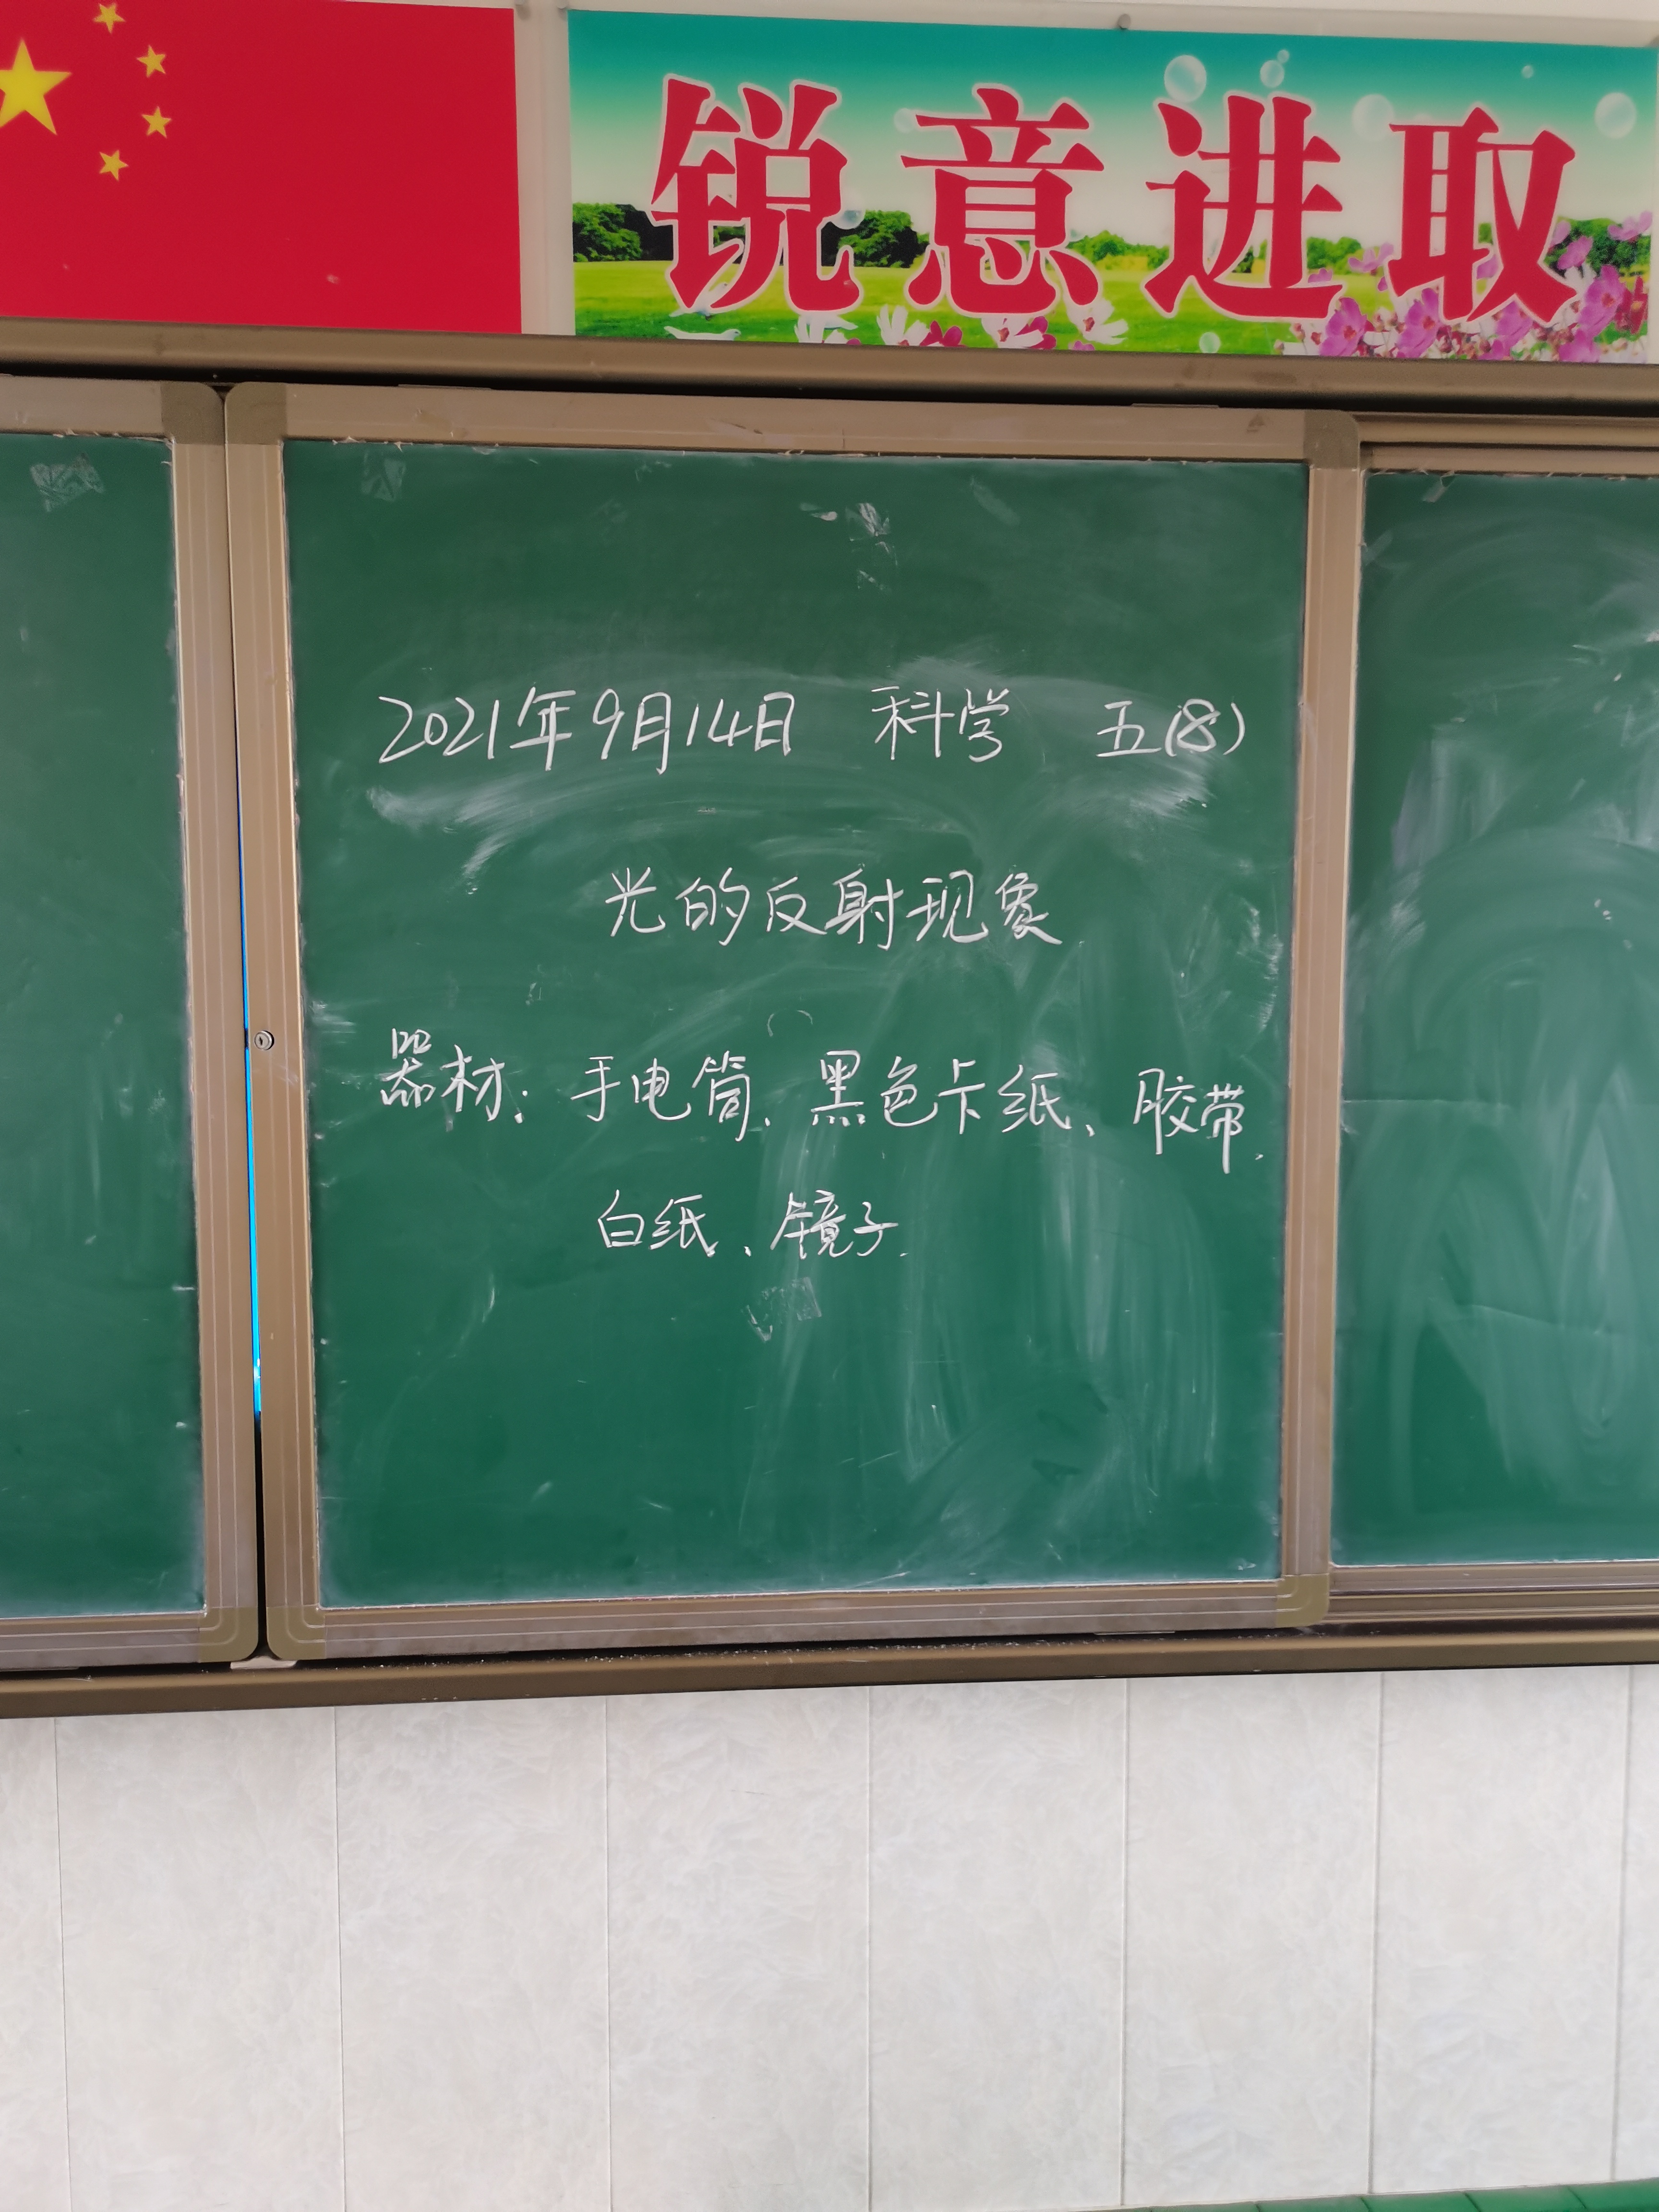 锐意进取
2021年9月14日 科学 五(8)
光的反射现象
器材：手电筒、黑色卡纸、胶带、
白纸、镜子.